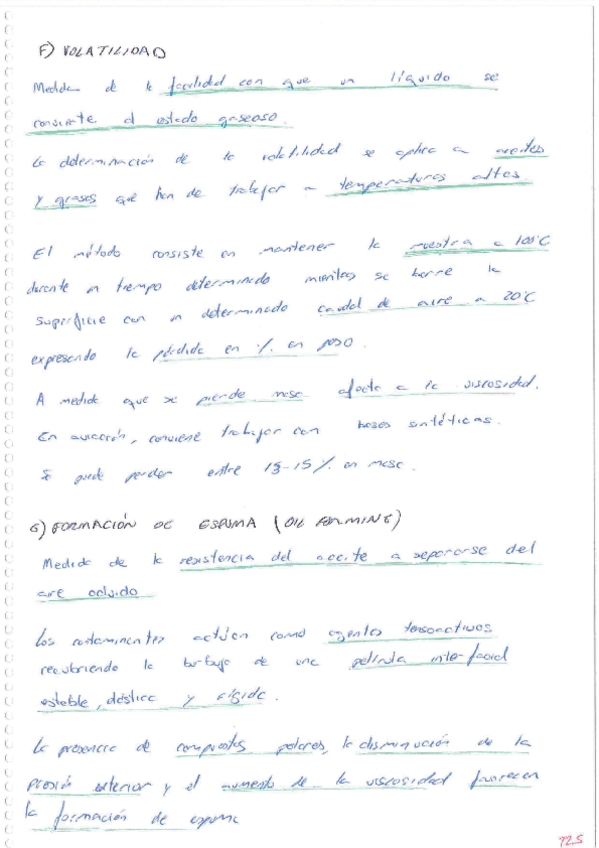 F) VOLATILIDAD
Medida de la facilidad con que un líquido se
convierte al estado gaseoso.
La determinación de la volatilidad se aplica a aceites
y grasas que han de trabajar a temperaturas altas.
El método consiste en mantener la muestra a 100°C
durante un tiempo determinado mientras se barre la
superficie con un determinado caudal de aire a 20°C
expresando la pérdida en % en peso.
A medida que se pierde masa afecta a la viscosidad.
En aviación, conviene trabajar con bases sintéticas.
Se puede perder entre 13-15% en masa.
G) FORMACIÓN DE ESPUMA (OIL FORMING)
Medida de la resistencia del aceite a separarse del
aire ocluido
Los contaminantes actúan como agentes tensoactivos
recubriendo la burbuja de una película interfacial
estable, elástica y rígida.
La presencia de compuestos polares, la disminución de la
presión exterior y el aumento de la viscosidad favorecen
la formación de espuma
125